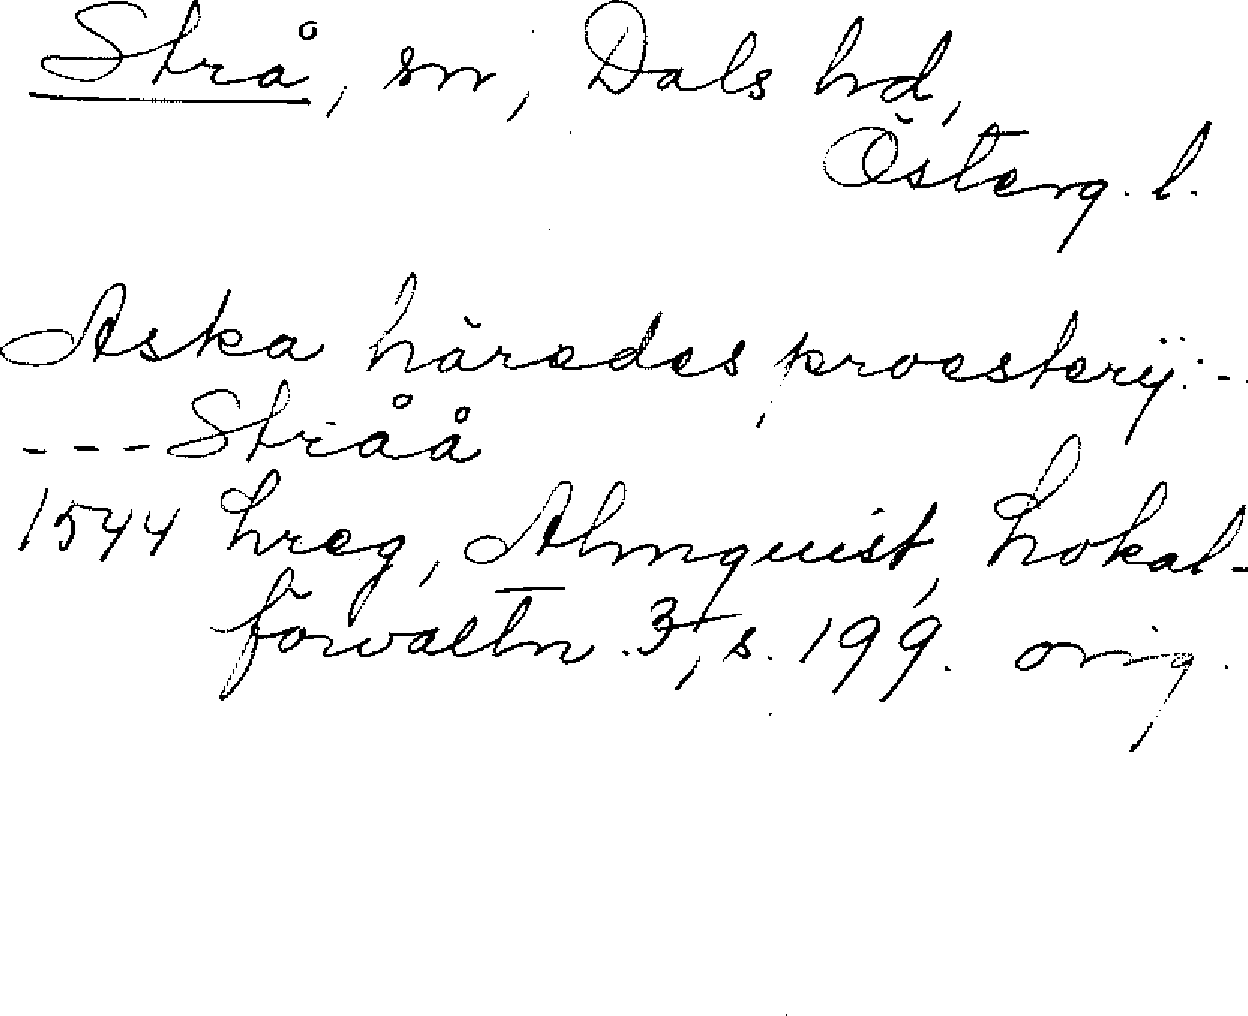 Strå, sn, Dals hd,
Österg. l.
Aska häredes proesterij: -
--- Stråå
1544 hreg, Almquist, Lokal-
förvaltn. 3, s. 199. orig.